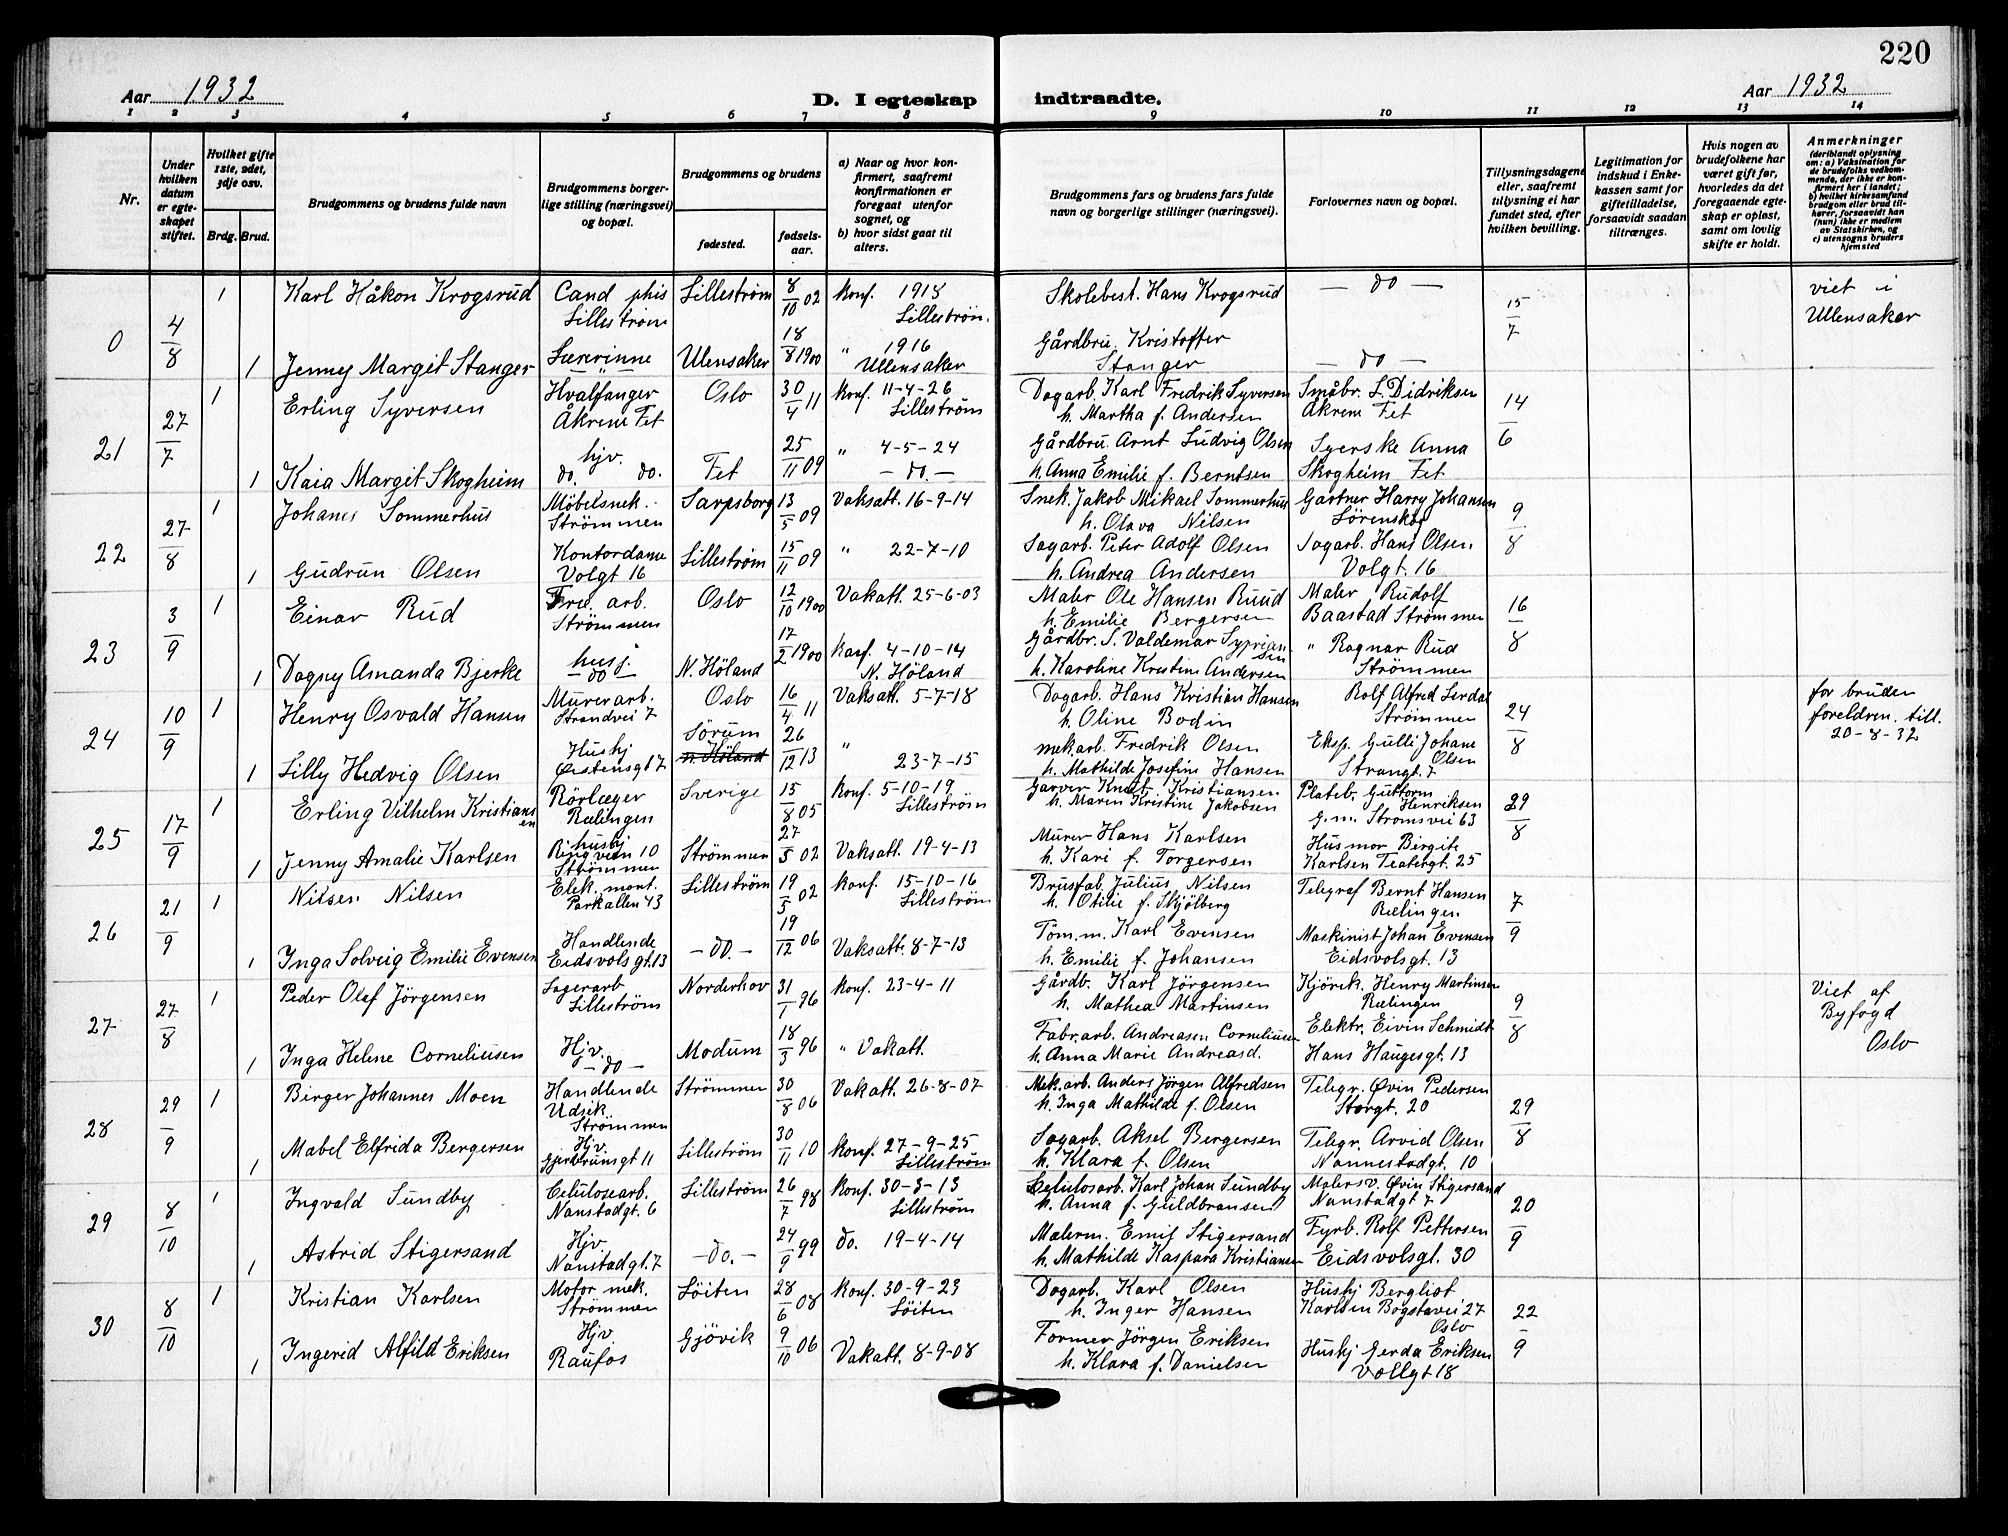 220
Aar 1932
D. I egteskap indtraadte.
Aar 1932
1 2 3 4 5 6 7 8 9 10 11 12 13 14
Nr.
Under hvilken datum er egteskapet stiftet.
Hvilket gifte 1ste, 2det, 3dje osv.
Brdg. Brud.
Brudgommens og brudens fulde navn
Brudgommens borgerlige stilling (næringsvei) og bopæl.
Brudgommens og brudens
fødested.
fødselsaar.
a) Naar og hvor konfirmert, saafremt konfirmationen er foregaat utenfor sognet, og
b) hvor sidst gaat til alters.
Brudgommens fars og brudens fars fulde navn og borgerlige stillinger (næringsvei).
Forlovernes navn og bopæl.
Tillysningsdagene eller, saafremt tillysning ei har fundet sted, efter hvilken bevilling.
Legitimation for indskud i Enkekassen samt for giftetilladelse, forsaavidt saadan tiltrænges.
Hvis nogen av brudefolkene har været gift før, hvorledes da det foregaaende egteskap er opløst, samt om lovlig skifte er holdt.
Anmerkninger
(deriblandt oplysning om: a) Vaksination for de brudefolks vedkommende, der ikke er konfirmert her i landet; b) hvilket kirkesamfund brudgom eller brud tilhører, forsaavidt han (hun) ikke er medlem av Statskirken, og c) utensogns bruders hjemsted
0 4/8 1 Karl Håkon Krogsrud Cand phis Lilleström Lilleström 8/10 02 konf. 1918 Lilleström. Skolebest. Hans Krogsrud — do — 15/7 viet i Ullensaker
1 Jenny Margit Stanger Lærerinne — " — Ulensaker 18/8 1900 " 1916 Ullensaker Gårdbru. Kristoffer Stanger — do —
21 27/7 1 Erling Syversen Hvalfanger Åkrene Fet Oslo 30/4 11 konf. 11-4-26 Lilleström Dagarb. Karl Fredrik Syversen h. Martha f. Andersen Småbr. L. Didriksen Åkrene Fet 14/6
1 Kaia Margit Skogheim hjv. do. do. Fet 25/11 09 " 4-5-24 — do. — Gårdbru. Arnt Ludvig Olsen h. Anna Emilie f. Berntsen Syerske Anna Skogheim Fet
22 27/8 1 Johanes Sommerhus Möbelsnek. Strömmen Sarpsborg 13/5 09 Vaksatt. 16-9-14 Snek. Jakob Mikael Sommerhus h. Olava Nilsen Gartner Harry Johansen Lörenskog 9/8
1 Gudrun Olsen Kontordame Volgt 16 Lilleström 15/11 09 " 22-7-10 Sagarb. Peter Adolf Olsen h. Andrea Andersen Sagarb. Hans Olsen Volgt. 16
23 3/9 1 Einar Rud arb. Strömmen Oslo 12/10 1900 Vakatt. 25-6-03 Maler Ole Hansen Ruud h. Emilie Bergersen Maler Rudolf Baastad Strömmen 16/8
1 Dagny Amanda Bjerke husj. — do — N. Höland 17/2 1900 konf. 4-10-14 N. Höland Gårdbr. S. Valdemar Sypriansen h. Karoline Kristine Andersen " Ragnar Rud Strömmen
24 10/9 1 Henry Osvald Hansen Murerarb. Strandvei 7 Oslo 16/4 11 Vaksatt. 5-7-18 Dagarb. Hans Kristian Hansen h. Oline Bodin Rolf Alfred Lerdal Strömmen 24/8 for bruden foreldren. till. 20-8-32
1 Lilly Hedvig Olsen Hushj Örstensgt 7 Sörum n. Höland 26/12 13 " 23-7-15 mek.arb. Fredrik Olsen h. Mathilde Josefine Hansen Eksp. Gulli Johane Olsen Strangt. 7
25 17/9 1 Erling Vilhelm Kristiansen Rörlæger Rælingen Sverige 15/8 05 konf. 5-10-19 Lilleström Garver Knut Kristiansen h. Maren Kristine Jakobsen Plateb. Guttorm Henriksen G.m. Strömsvei 63 29/8
1 Jenny Amalie Karlsen hushj Ringveien 10 Strömmen Strömmen 27/5 02 Vaksatt. 19-4-13 Murer Hans Karlsen h. Kari f. Torgersen Husmor Birgit Karlsen Teatergt. 25
26 21/9 1 Nilsen Nilsen Elek. mont. Parkallen 43 Lilleström 19/5 02 konf. 15-10-16 Lilleström Brusfab. Julius Nilsen h. Otilie f. Skjölberg Telegraf Bernt Hansen Rælingen 7/9
1 Inga Solveig Emilie Evensen Handlende Eidsvolsgt. 13 — do. — 19/12 06 Vaksatt. 8-7-13 Töm.m. Karl Evensen h. Emilie f. Johansen Maskinist Johan Evensen Eidsvolsgt. 13
27 27/8 1 Peder Olaf Jörgensen Lagerarb Lilleström Norderhov 31/1 96 konf. 23-4-11 Gårdb. Karl Jörgensen h. Mathea Martinsen Kjörek. Henry Martinsen Rælingen 9/8 Viet af Byfogd Oslo
1 Inga Helene Corneliusen Hjv. — do — Modum 18/3 96 " Vakatt. Fabr.arb. Andreasen Corneliusen h. Anna Marie Andreasd. Elektr. Eivin Schmidt Hans Haugesgt. 13
28 29/9 1 Birger Johannes Moen Handlende Udsik Strömmen Strömmen 30/8 06 Vakatt. 26-8-07 Mek.arb. Anders Jörgen Alfredsen h. Inga Mathilde f. Olsen Telegr. Övin Pedersen Storgt. 20 29/8
1 Mabel Elfrida Bergersen Hjv. Gjerdrumsgt 11 Lilleström 30/11 10 konf. 27-9-25 Lilleström Sagarb. Aksel Bergersen h. Klara f. Olsen Telegr. Arvid Olsen Nannestadgt. 10
29 8/10 1 Ingvald Sundby Celulosearb. Nanstadgt. 6 Lilleström 26/7 98 konf. 30-3-13 Lilleström Celulosarb. Karl Johan Sundby h. Anna f. Guldbransen Malersv. Övin Stigersand Nanstadgt 7 20/9
1 Astrid Stigersand Hjv. Nanstadgt. 7 — do. — 24/9 99 do. 19-4-14 Malerm. Emil Stigersand h. Mathilde Kaspara Kristiansen Fyrb. Rolf Pettersen Eidsvolsgt. 30
30 8/10 1 Kristian Karlsen Motor mek. Strömmen Löiten 28/6 08 konf. 30-9-23 Löiten Dagarb. Karl Olsen h. Inger Hansen Hushj Bergliot Karlsen Bogstavei 27 Oslo 22/9
1 Ingerid Alfild Eriksen Hjv. Raufos Gjövik 9/10 06 Vakatt. 8-9-08 Former Jörgen Eriksen h. Klara f. Danielsen Hushj Gerda Eriksen Vollgt 18